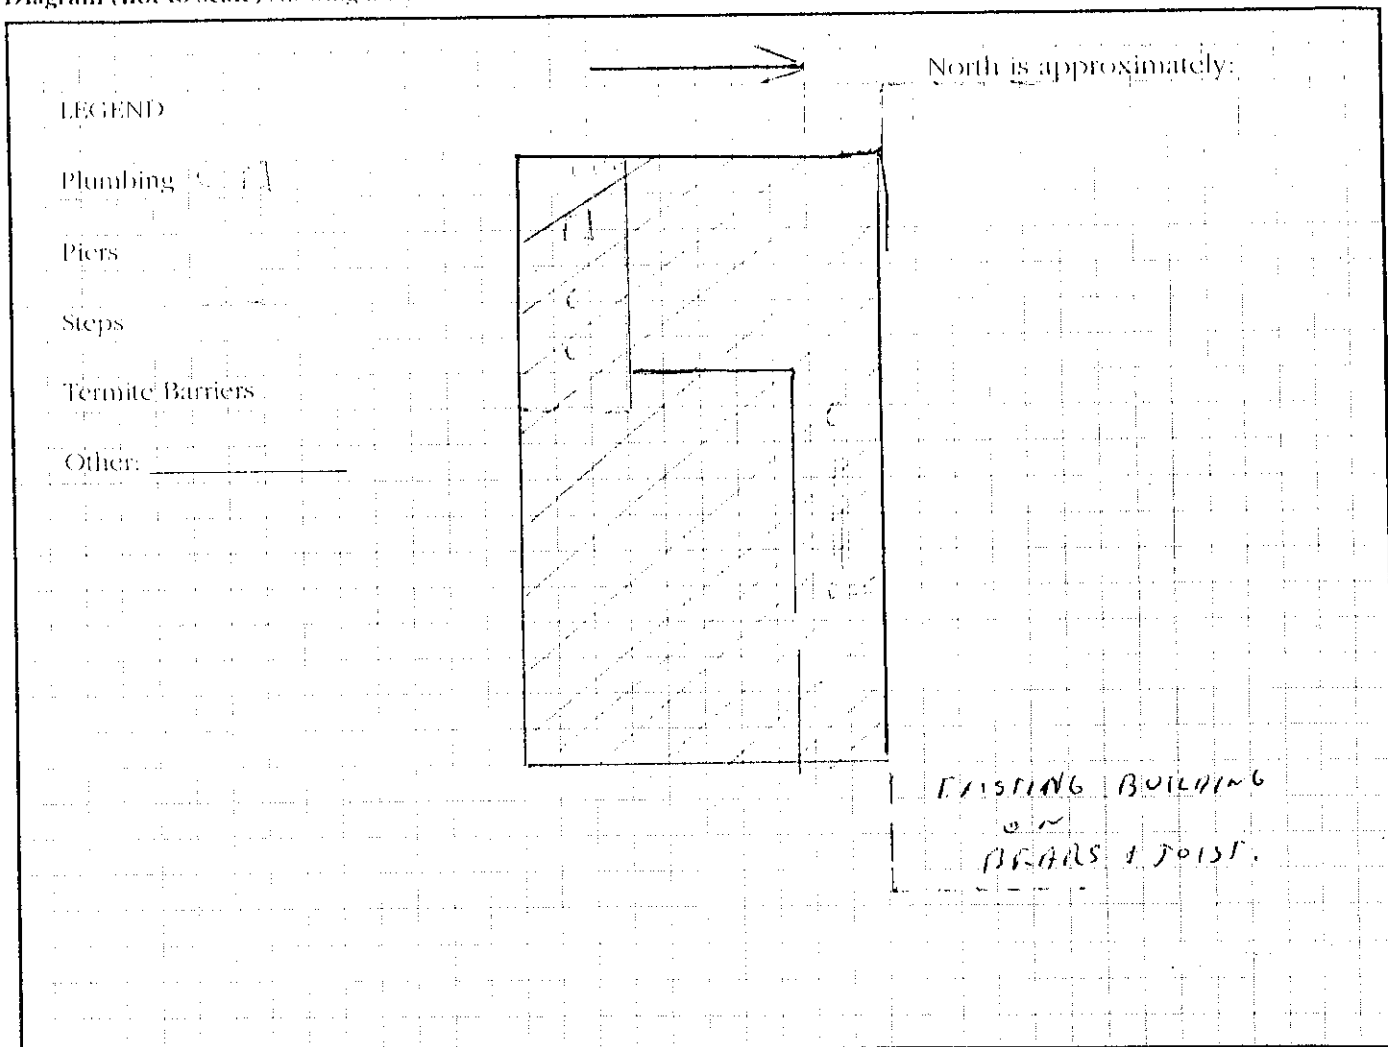 Diagram (not to scale)
North is approximately:
LEGEND
Plumbing
Piers
Steps
Termite Barriers
Other:
EXISTING BUILDING
ON
BEARS & JOIST.